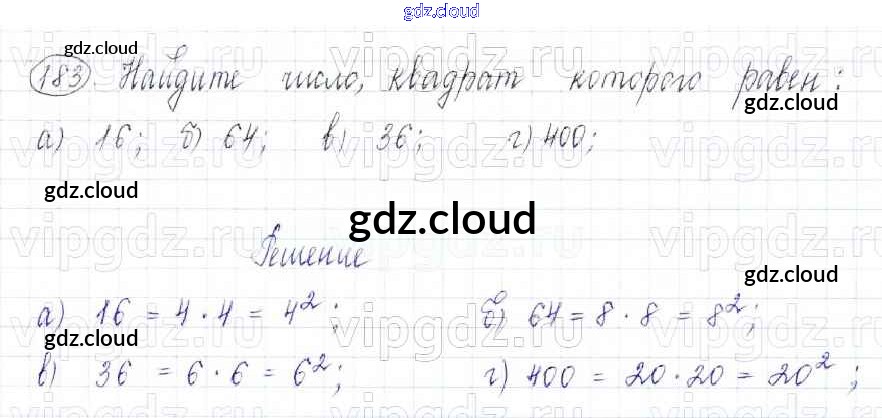 gdz.cloud
gdz.cloud
183 Найдите число, квадрат которого равен:
gdz.cloud
а) 16; б) 64; в) 36; г) 400;
gdz.cloud
gdz.cloud
vipgdz.ru
Решение
gdz.cloud
а) 16 = 4 · 4 = 4²; б) 64 = 8 · 8 = 8²;
в) 36 = 6 · 6 = 6²; г) 400 = 20 · 20 = 20²;